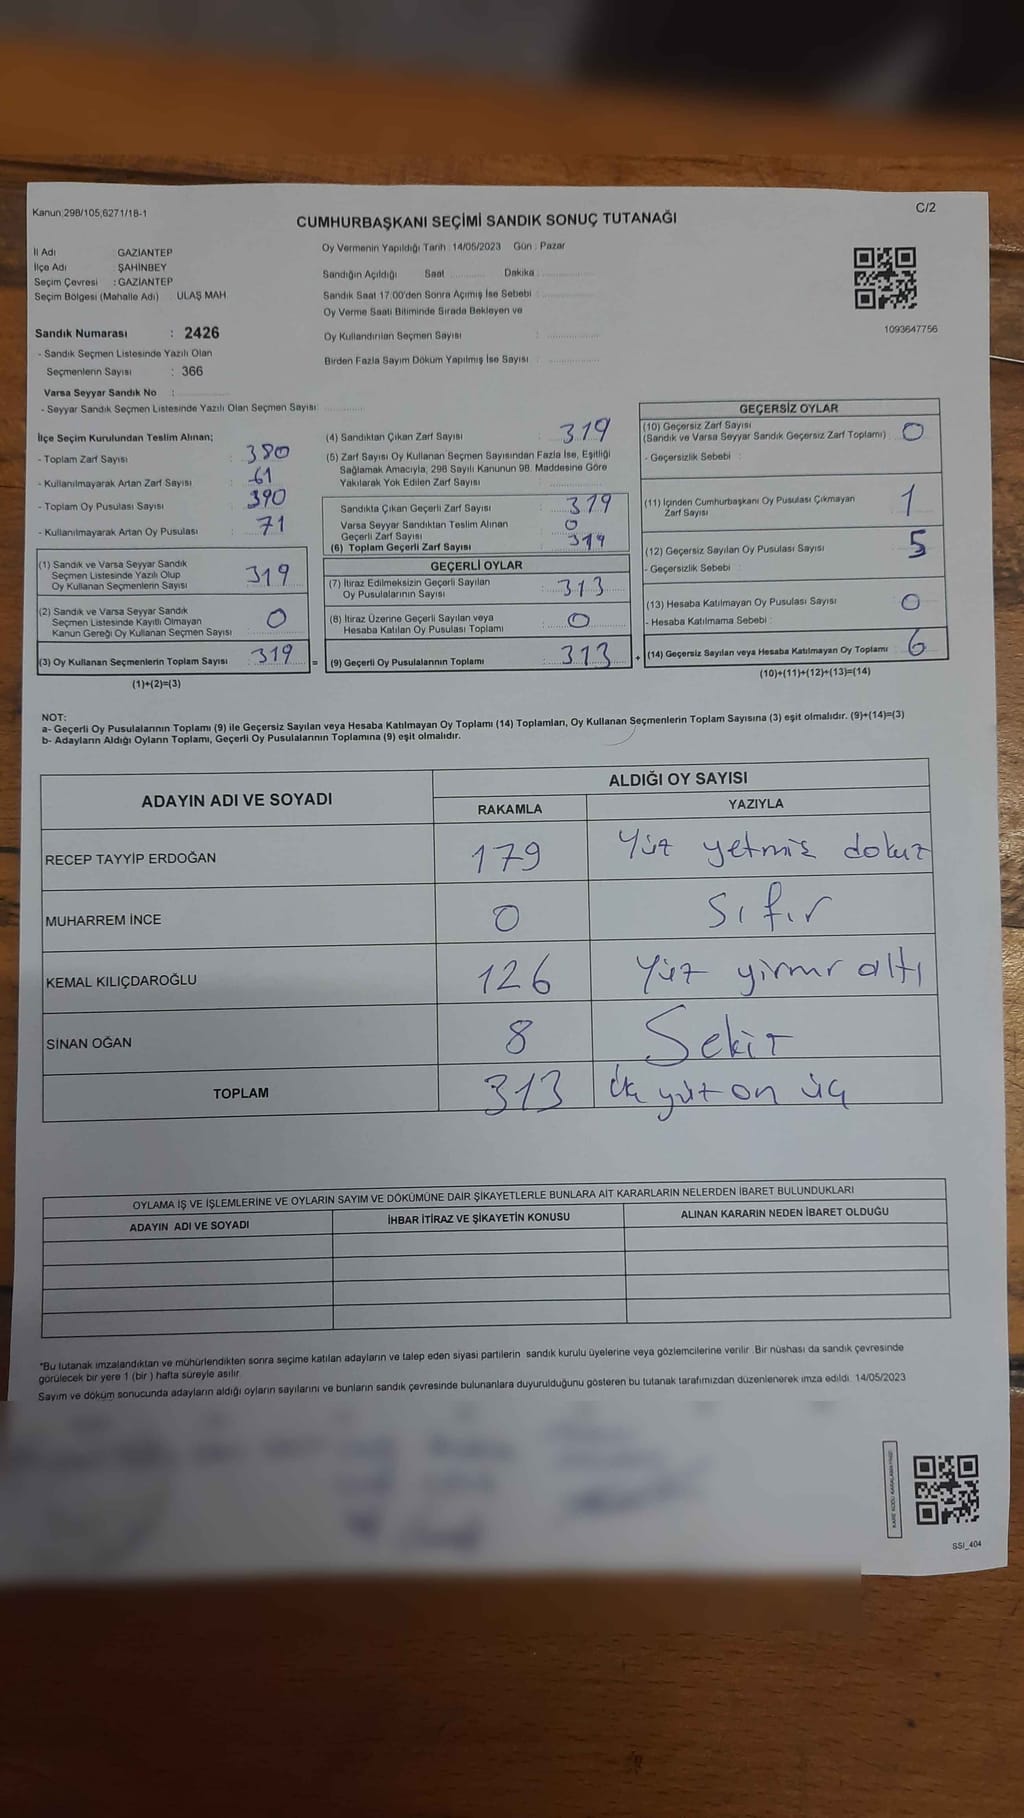 Kanun;298/105;6271/18-1
C/2
CUMHURBAŞKANI SEÇİMİ SANDIK SONUÇ TUTANAĞI
İl Adı GAZİANTEP
İlçe Adı ŞAHİNBEY
Seçim Çevresi : GAZİANTEP
Seçim Bölgesi (Mahalle Adı) . ULAŞ MAH
Sandık Numarası : 2426
- Sandık Seçmen Listesinde Yazılı Olan
Seçmenlerin Sayısı : 366
Varsa Seyyar Sandık No :
- Seyyar Sandık Seçmen Listesinde Yazılı Olan Seçmen Sayısı:
Oy Vermenin Yapıldığı Tarih : 14/05/2023 Gün : Pazar
Sandığın Açıldığı Saat Dakika :
Sandık Saat 17.00'den Sonra Açımış İse Sebebi :
Oy Verme Saati Bitiminde Sırada Bekleyen ve
Oy Kullandırılan Seçmen Sayısı :
Birden Fazla Sayım Döküm Yapılmış İse Sayısı :
1093647756
İlçe Seçim Kurulundan Teslim Alınan;
- Toplam Zarf Sayısı : 380
- Kullanılmayarak Artan Zarf Sayısı : 61
- Toplam Oy Pusulası Sayısı : 390
- Kullanılmayarak Artan Oy Pusulası : 71
(1) Sandık ve Varsa Seyyar Sandık
Seçmen Listesinde Yazılı Olup
Oy Kullanan Seçmenlerin Sayısı : 319
(2) Sandık ve Varsa Seyyar Sandık
Seçmen Listesinde Kayıtlı Olmayan
Kanun Gereği Oy Kullanan Seçmen Sayısı 0
(3) Oy Kullanan Seçmenlerin Toplam Sayısı : 319 =
(1)+(2)=(3)
(4) Sandıktan Çıkan Zarf Sayısı : 319
(5) Zarf Sayısı Oy Kullanan Seçmen Sayısından Fazla İse, Eşitliği
Sağlamak Amacıyla, 298 Sayılı Kanunun 98. Maddesine Göre
Yakılarak Yok Edilen Zarf Sayısı :
Sandıkta Çıkan Geçerli Zarf Sayısı : 319
Varsa Seyyar Sandıktan Teslim Alınan
Geçerli Zarf Sayısı : 0
(6) Toplam Geçerli Zarf Sayısı : 319
GEÇERLİ OYLAR
(7) İtiraz Edilmeksizin Geçerli Sayılan
Oy Pusulalarının Sayısı : 313
(8) İtiraz Üzerine Geçerli Sayılan veya
Hesaba Katılan Oy Pusulası Toplamı : 0
(9) Geçerli Oy Pusulalarının Toplamı : 313 +
GEÇERSİZ OYLAR
(10) Geçersiz Zarf Sayısı
(Sandık ve Varsa Seyyar Sandık Geçersiz Zarf Toplamı) : 0
- Geçersizlik Sebebi :
(11) İçinden Cumhurbaşkanı Oy Pusulası Çıkmayan
Zarf Sayısı 1
(12) Geçersiz Sayılan Oy Pusulası Sayısı : 5
- Geçersizlik Sebebi :
(13) Hesaba Katılmayan Oy Pusulası Sayısı : 0
- Hesaba Katılmama Sebebi :
(14) Geçersiz Sayılan veya Hesaba Katılmayan Oy Toplamı : 6
(10)+(11)+(12)+(13)=(14)
NOT:
a- Geçerli Oy Pusulalarının Toplamı (9) ile Geçersiz Sayılan veya Hesaba Katılmayan Oy Toplamı (14) Toplamları, Oy Kullanan Seçmenlerin Toplam Sayısına (3) eşit olmalıdır. (9)+(14)=(3)
b- Adayların Aldığı Oyların Toplamı, Geçerli Oy Pusulalarının Toplamına (9) eşit olmalıdır.
ADAYIN ADI VE SOYADI
ALDIĞI OY SAYISI
RAKAMLA YAZIYLA
RECEP TAYYİP ERDOĞAN 179 Yüz yetmiş dokuz
MUHARREM İNCE 0 Sıfır
KEMAL KILIÇDAROĞLU 126 Yüz yirmi altı
SİNAN OĞAN 8 Sekiz
TOPLAM 313 Üç yüz on üç
OYLAMA İŞ VE İŞLEMLERİNE VE OYLARIN SAYIM VE DÖKÜMÜNE DAİR ŞİKAYETLERLE BUNLARA AİT KARARLARIN NELERDEN İBARET BULUNDUKLARI
ADAYIN ADI VE SOYADI İHBAR İTİRAZ VE ŞİKAYETİN KONUSU ALINAN KARARIN NEDEN İBARET OLDUĞU
*Bu tutanak imzalandıktan ve mühürlendikten sonra seçime katılan adayların ve talep eden siyasi partilerin sandık kurulu üyelerine veya gözlemcilerine verilir .Bir nüshası da sandık çevresinde
görülecek bir yere 1 (bir ) hafta süreyle asılır.
Sayım ve döküm sonucunda adayların aldığı oyların sayılarını ve bunların sandık çevresinde bulunanlara duyurulduğunu gösteren bu tutanak tarafımızdan düzenlenerek imza edildi. 14/05/2023
SSI_404